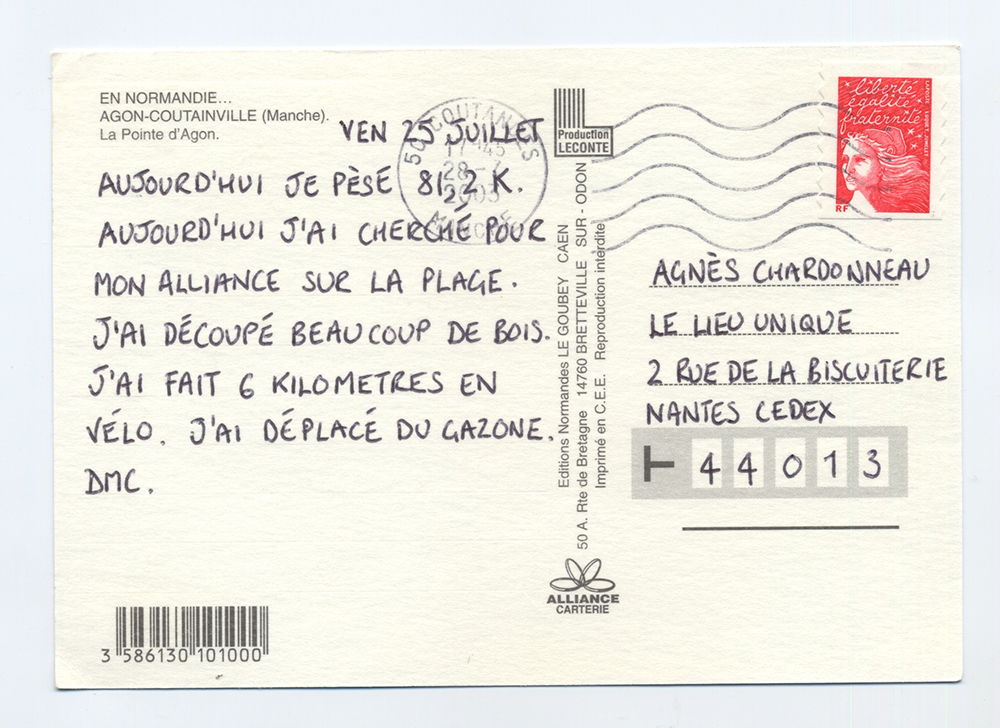 EN NORMANDIE...
AGON-COUTAINVILLE (Manche).
La Pointe d'Agon.
VEN 25 JUILLET
AUJOURD'HUI JE PÈSE 81,2 K.
AUJOURD'HUI J'AI CHERCHÉ POUR
MON ALLIANCE SUR LA PLAGE.
J'AI DÉCOUPÉ BEAUCOUP DE BOIS.
J'AI FAIT 6 KILOMETRES EN
VÉLO. J'AI DÉPLACÉ DU GAZONE.
DMC.
3 586130 101000
50 COUTANCES
17H45
28-
2003
MANCHE
Production
LECONTE
Editions Normandes LE GOUBEY CAEN
50 A. Rte de Bretagne 14760 BRETTEVILLE SUR - ODON
Imprimé en C.E.E. Reproduction interdite
ALLIANCE
CARTERIE
liberté
égalité
fraternité
RF
LA POSTE
AGNÈS CHARDONNEAU
LE LIEU UNIQUE
2 RUE DE LA BISCUITERIE
NANTES CEDEX
T 44013